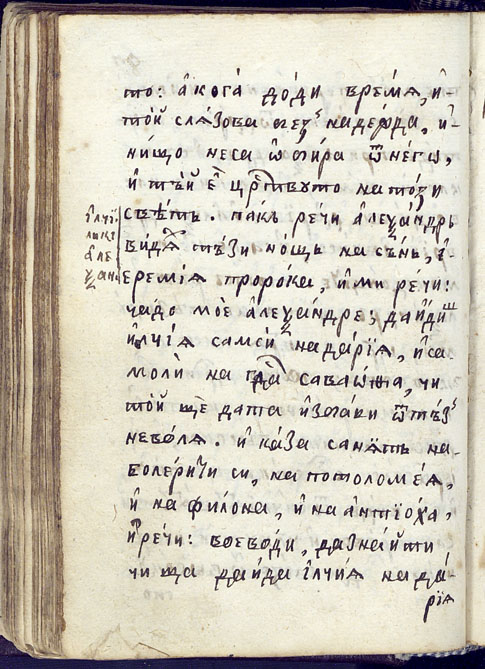 то: а̑кога̀ до́ди вре́мѧ, и҆-
то́й слѧ́зова ѿ надерꙋда, и҆-
ни́що неса ѿвира ѿ негѡ,
и҆ тѣ́й е҆ црⷭ҇твꙋто на то́ѕи
свѣтъ. пакъ речи а҆леѯа́ндръ
ви́дѧⷯ тѣ́зи но́щь на съ́нь, і҆-
еремі́ѧ проро́ка, и҆ми речи:
ча́до моѐ а҆леѯа́ндре; да и҆́диш
и҆лчі́ѧ самси на да́рїѧ, и҆ са
моли̇̀ на гдⷭ҇а саваѡ́ѳа, чи
то́й ще да та и҆зваки ѿ тѣ́з
нево́лѧ. и҆ ка́за санѧтъ на-
болери́ти си, на потоломе́ѧ,
и҆ на фило́на, и҆ на а҆нтїо́ха,
и҆ речи: воево́ди, да зна́йти
чи ща да и҆́да и҆лчі́ѧ на да́-
рїѧ
и҆лчїѧ
лыкъ
а҆ле
ѯан